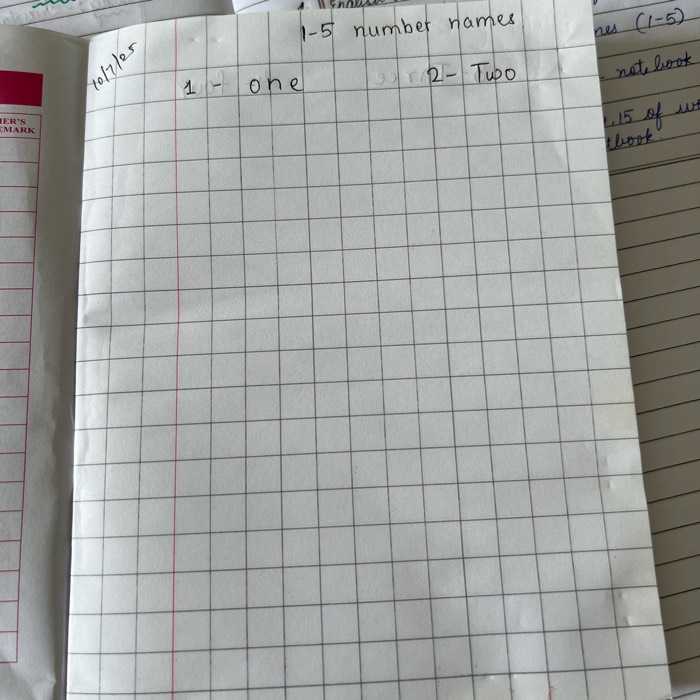 1-5 number names
10/7/25
1 - one 2- Two
nes (1-5)
note book
.15 of
tbook.
ER'S
EMARK